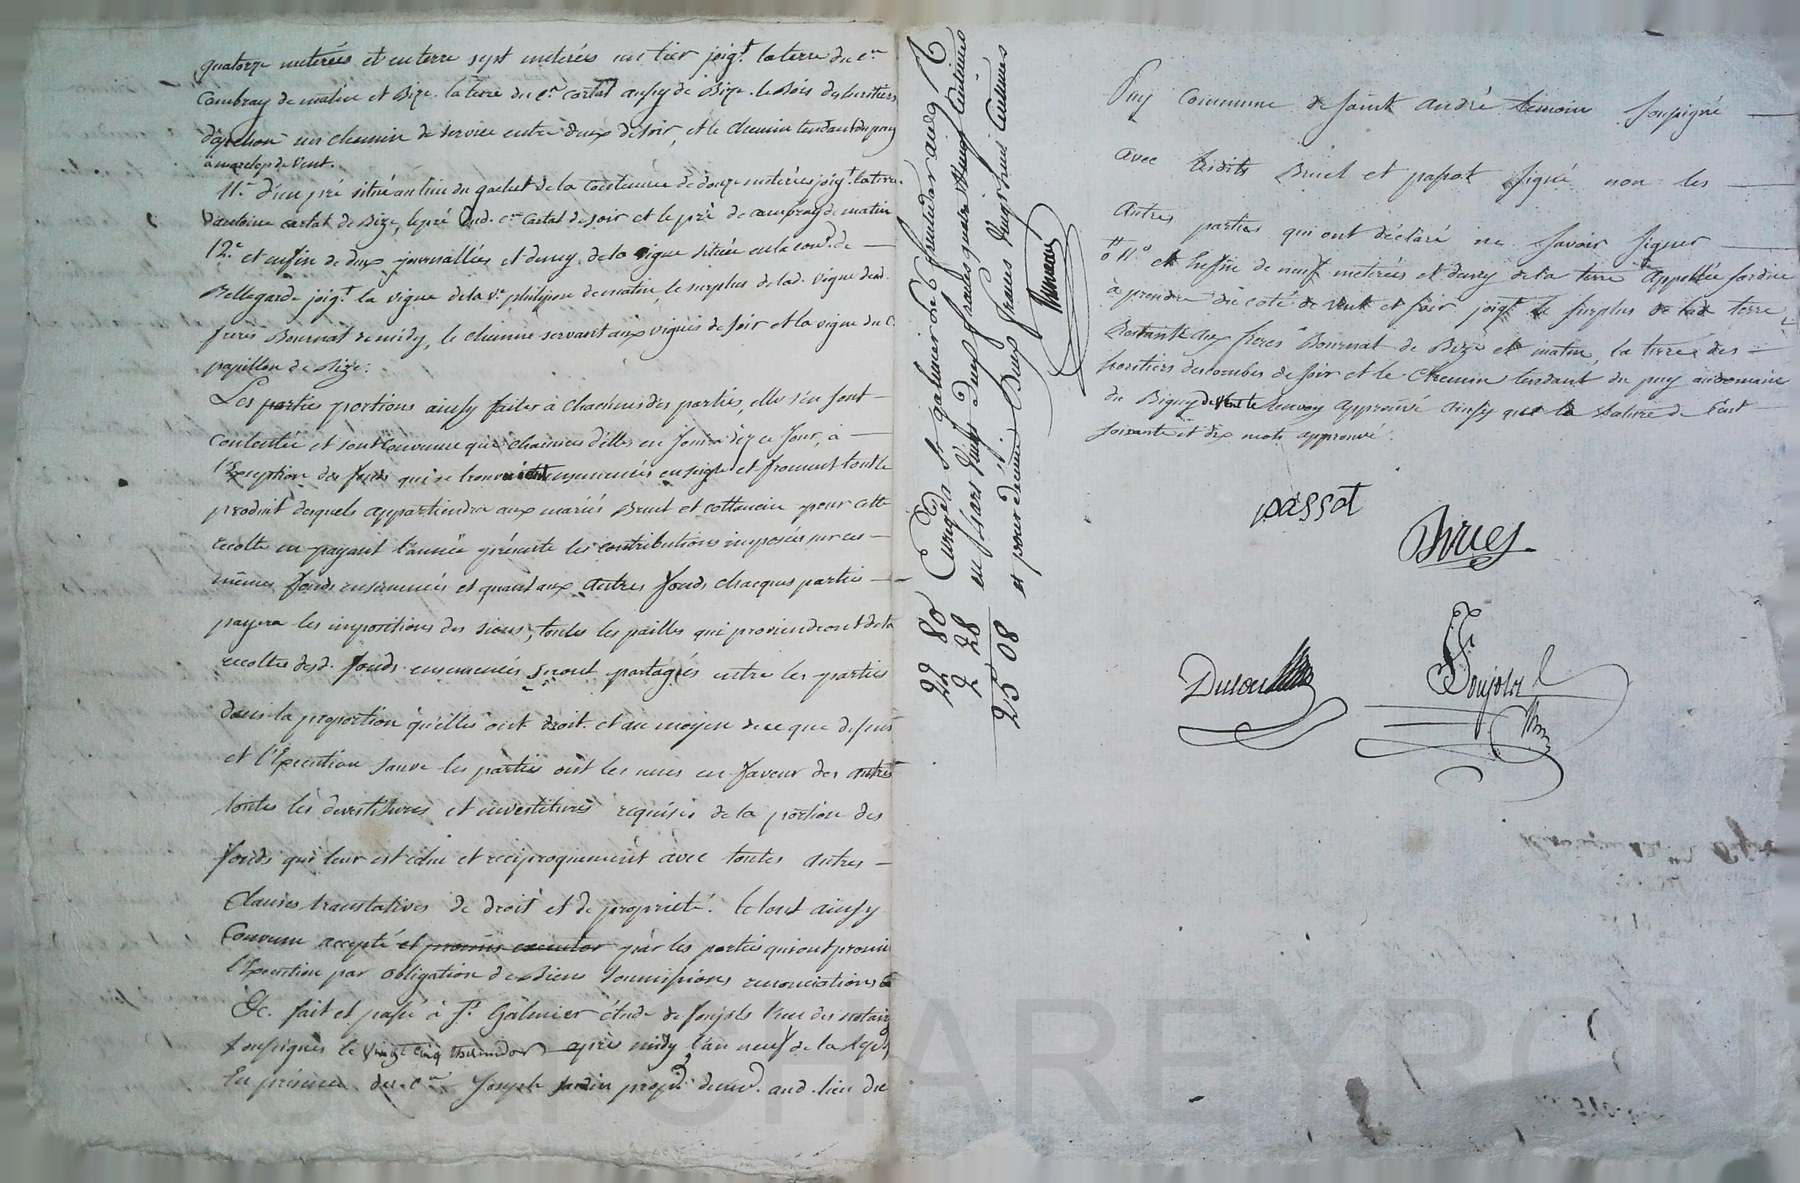 quatorze meterées et en terre sept meterées un tier joigt. la terre du cen.
Combray de matin et Bize. la terre du cn. cartal aussy de Bize. le Bois des heritiers
un chemin de service entre deux de soir, et le chemin tendant du puy
de vent.
11.° d'un pré situé au lieu du de la Contenue de douze meterées joigt. la terre
d'antoine cartal de Bize, le pré dud. cen cartal de soir et le pré de cambray de matin
12.° et enfin de deux journallées et demy de la vigne située en la comne. de
Bellegarde joigt. la vigne de la ve. philipon de matin, le surplus de lad. vigne desd.
freres Bournat de midy, le chemin servant aux vignes de soir et la vigne du C.
papillon de Bize.
Les parties portions ainsy faites à chacunes des parties, elle s'en sont
contentée et sont convenue que chacunes d'elles en Jouira dez ce Jour, à
l'Exception des fonds qui se trouvent ensemencés en seigle et froment tout le
produit desquels appartiendra aux mariés Bruel et cottancin pour cette
recolte en payant l'année présente les contributions imposées sur ces
mêmes fonds ensemencés et quant aux autres fonds chacques partie
payera les impositions des siens, toutes les pailles qui proviendront de la
recolte desd. fonds ensemencés seront partagées entre les parties
dans la proportion qu'elles ont droit. et au moyen de ce que dessus
et l'Execution sauve les parties ont les unes en faveur des autres
toutes les devestitures et investitures requises de la portion des
fonds qui leur est echu et reciproquement avec toutes autres
Clauses translatives de droit et de proprieté. le tout ainsy
Convenu accepté et promis executer par les parties qui ont promis
l'Execution par obligation de Biens soumissions renonciations &
&c. fait et passé à St. Galmier étude de Soujols l'un des notaires
soussignés le vingt cinq thermidor après midy, l'an neuf de la Rep.
En présence du cen. Joseph propre. demt. aud. lieu du
22 80 Enregé. a St. galmier le 6 fructidor an 9 R
2 28 en francs vingt Deux francs quatre vingt Centimes
25 08 et pour decime Deux francs vingt huit Centimes
Puy Commune de Saint André témoin soussigné
avec lesdits Bruel et passot signé non les
Autres parties qui ont déclaré ne savoir signer
11.° et de neuf meterées et demy de la terre Appellée
à prendre du coté de vent et soir joigt le surplus de lad terre
Restante aux freres Bournat de Bize et matin, la terre des
heritiers descombes de soir et le Chemin tendant du puy au domaine
du Bigny de vent le Renvoy approuvé ainsy que la Rature de Cent
soixante et dix mots approuvé.
passot
Bruel
Soujols